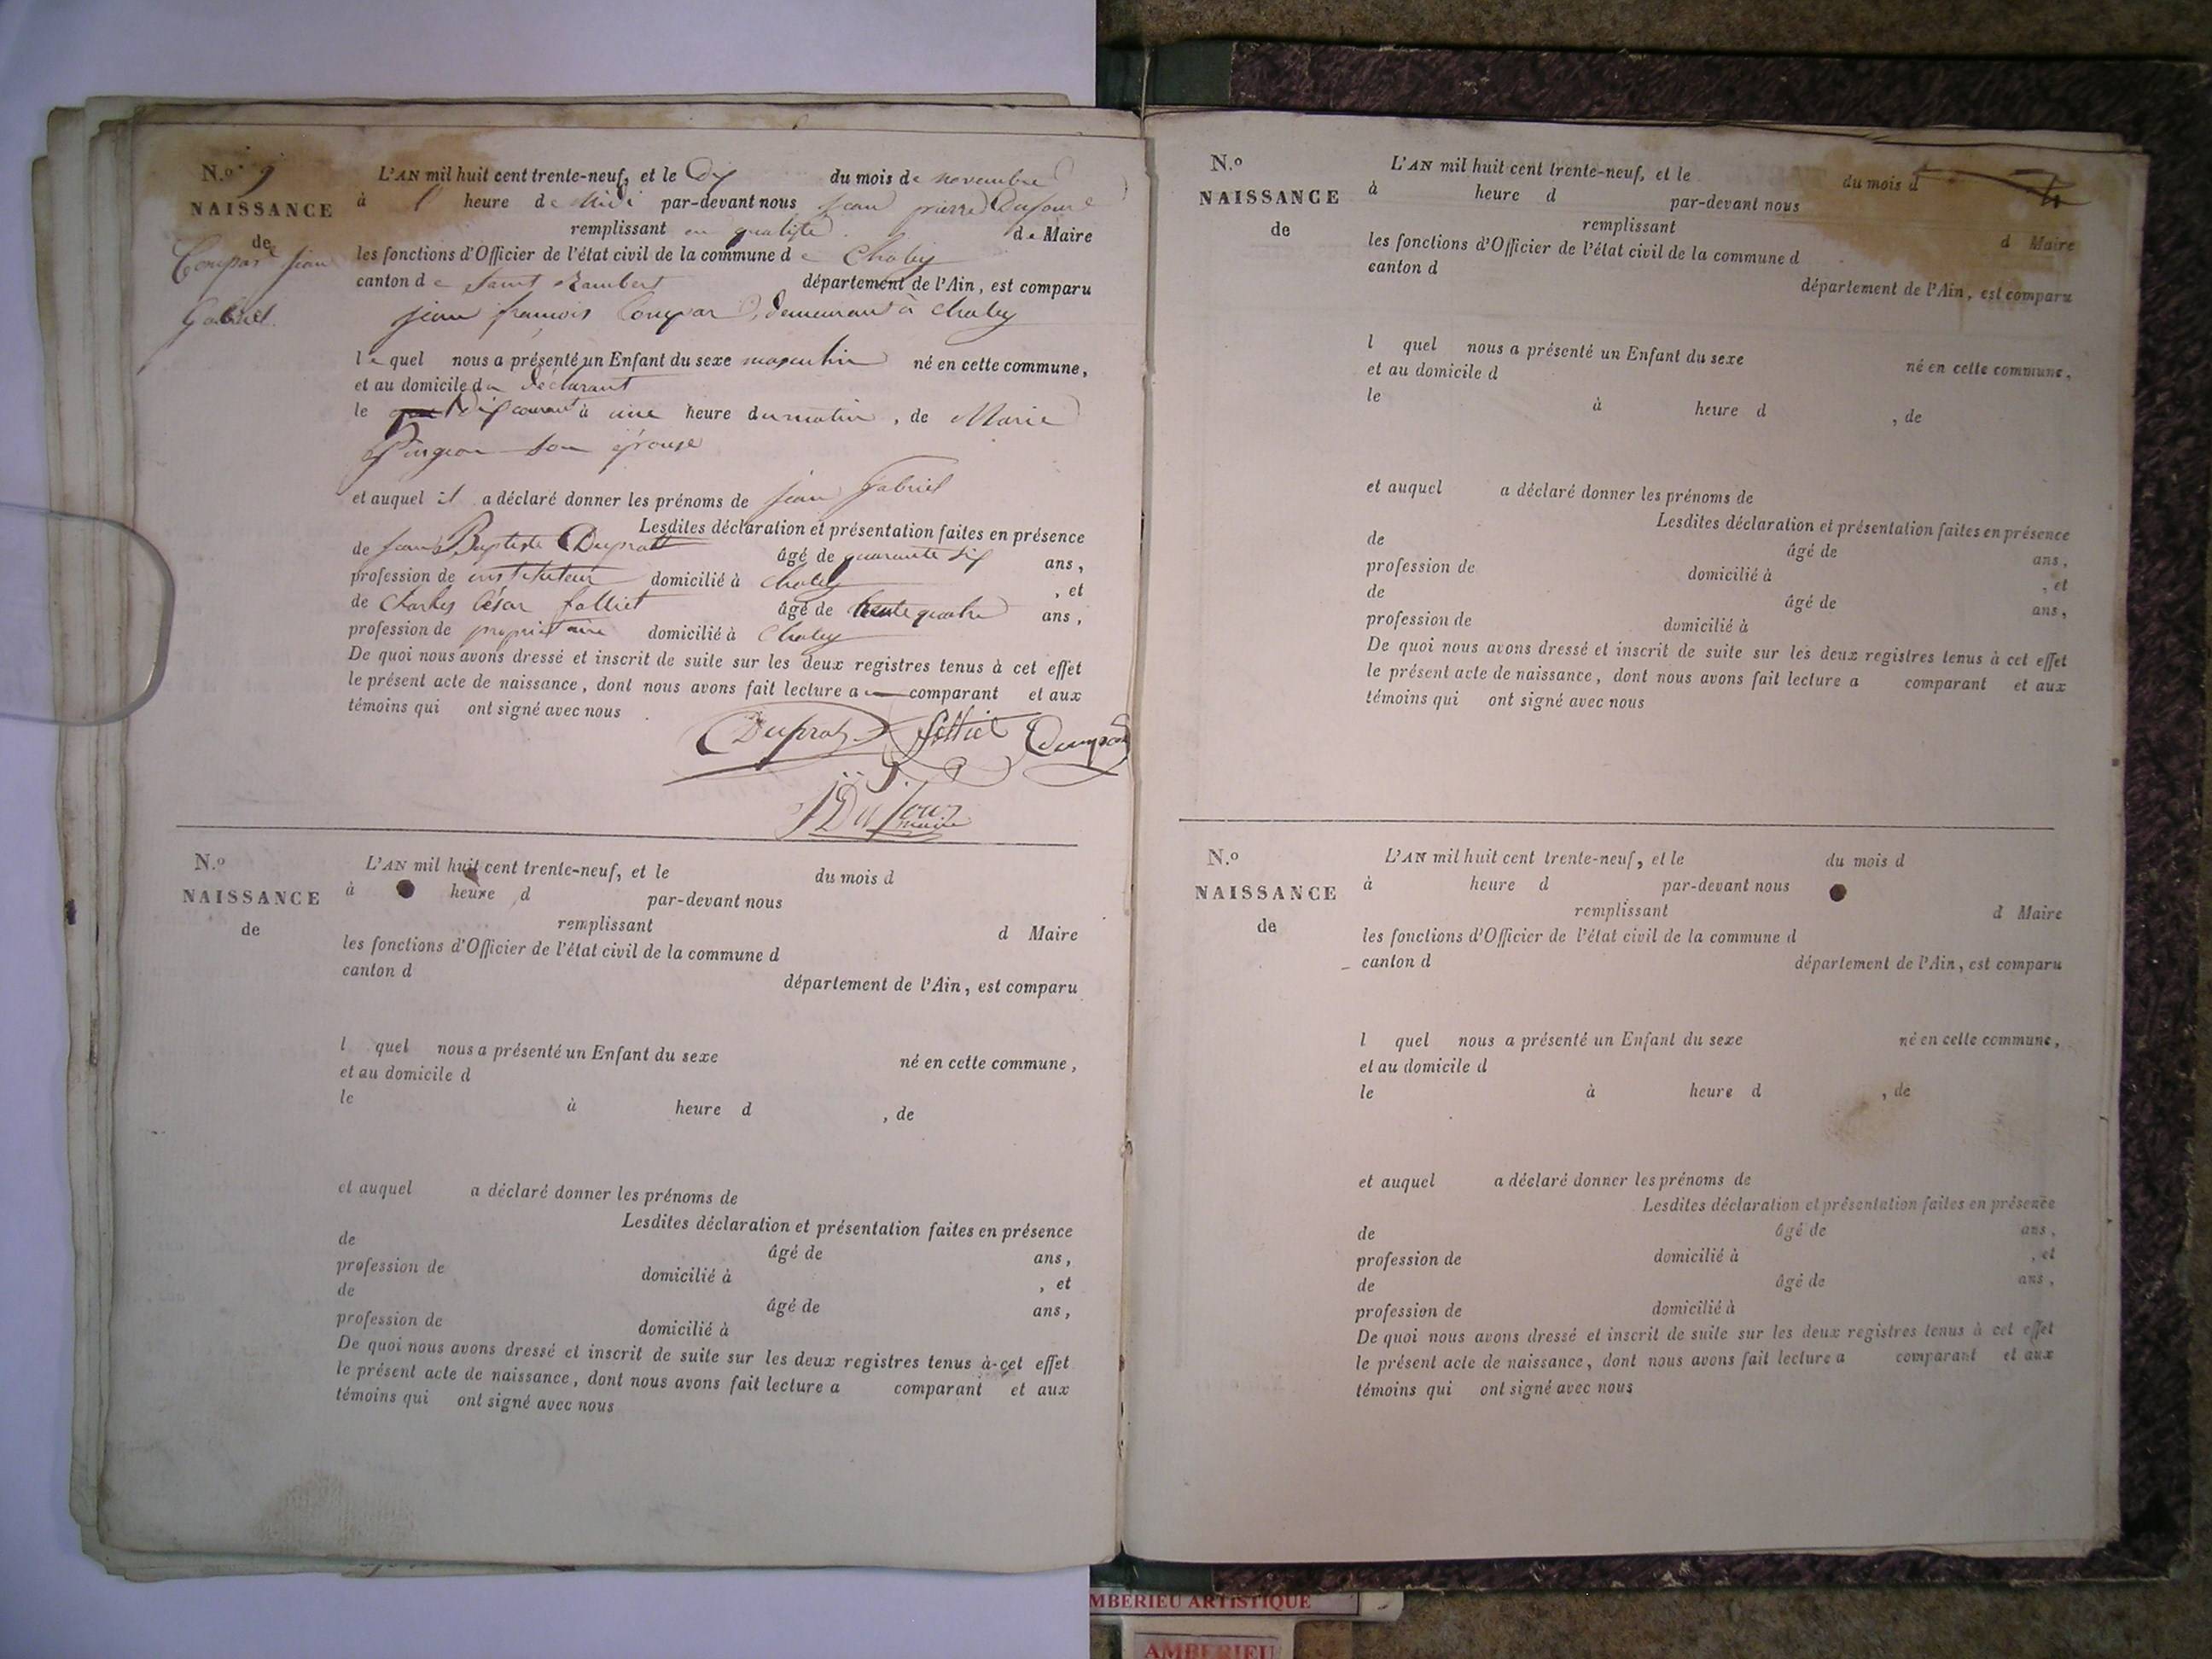 N.º 9
NAISSANCE
de
Compard Jean
Gabriel.
L'AN mil huit cent trente-neuf, et le dix du mois de novembre
à heure de Midi par-devant nous Jean pierre Dufour
remplissant en qualité de Maire
les fonctions d'Officier de l'état civil de la commune de Chaley
canton de Saint Rambert département de l'Ain, est comparu
jean francois Compard, demeurant à Chaley
lequel nous a présenté un Enfant du sexe masculin né en cette commune,
et au domicile du déclarant
le dix courant à une heure du matin, de Marie
Pingeon son épouse
et auquel il a déclaré donner les prénoms de jean gabriel
Lesdites déclaration et présentation faites en présence
de Jean Baptiste Duprat âgé de quarante six ans,
profession de instituteur domicilié à Chaley, et
de Charles César folliet âgé de trente quatre ans,
profession de propriétaire domicilié à Chaley
De quoi nous avons dressé et inscrit de suite sur les deux registres tenus à cet effet
le présent acte de naissance, dont nous avons fait lecture au comparant et aux
témoins qui ont signé avec nous.
Duprat folliet Compard
Dufour
maire
N.º
NAISSANCE
de
L'AN mil huit cent trente-neuf, et le du mois d
à heure d par-devant nous
remplissant d Maire
les fonctions d'Officier de l'état civil de la commune d
canton d département de l'Ain, est comparu
l quel nous a présenté un Enfant du sexe né en cette commune,
et au domicile d
le à heure d , de
et auquel a déclaré donner les prénoms de
Lesdites déclaration et présentation faites en présence
de âgé de ans,
profession de domicilié à , et
de âgé de ans,
profession de domicilié à
De quoi nous avons dressé et inscrit de suite sur les deux registres tenus à cet effet
le présent acte de naissance, dont nous avons fait lecture a comparant et aux
témoins qui ont signé avec nous
N.º
NAISSANCE
de
L'AN mil huit cent trente-neuf, et le du mois d
à heure d par-devant nous
remplissant d Maire
les fonctions d'Officier de l'état civil de la commune d
canton d département de l'Ain, est comparu
l quel nous a présenté un Enfant du sexe né en cette commune,
et au domicile d
le à heure d , de
et auquel a déclaré donner les prénoms de
Lesdites déclaration et présentation faites en présence
de âgé de ans,
profession de domicilié à , et
de âgé de ans,
profession de domicilié à
De quoi nous avons dressé et inscrit de suite sur les deux registres tenus à cet effet
le présent acte de naissance, dont nous avons fait lecture a comparant et aux
témoins qui ont signé avec nous
N.º
NAISSANCE
de
L'AN mil huit cent trente-neuf, et le du mois d
à heure d par-devant nous
remplissant d Maire
les fonctions d'Officier de l'état civil de la commune d
canton d département de l'Ain, est comparu
l quel nous a présenté un Enfant du sexe né en cette commune,
et au domicile d
le à heure d , de
et auquel a déclaré donner les prénoms de
Lesdites déclaration et présentation faites en présence
de âgé de ans,
profession de domicilié à , et
de âgé de ans,
profession de domicilié à
De quoi nous avons dressé et inscrit de suite sur les deux registres tenus à cet effet
le présent acte de naissance, dont nous avons fait lecture a comparant et aux
témoins qui ont signé avec nous
MBERIEU ARTISTIQUE
AMBERIEU